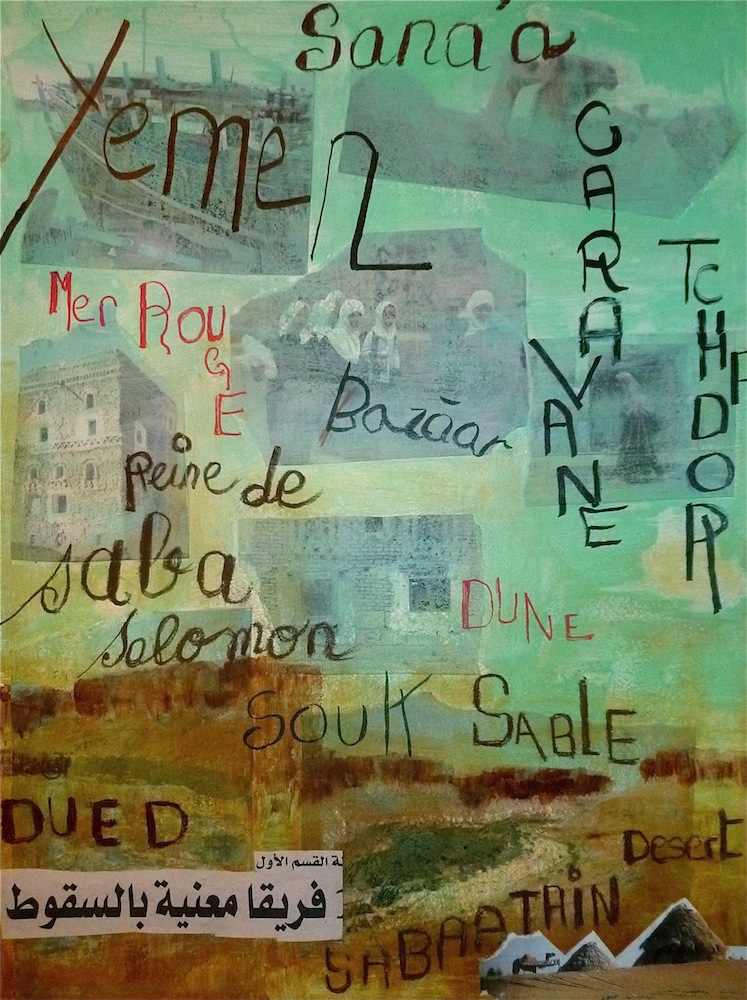 Sana'a
Yemen
CARAVANE
TCHADOR
Mer ROUGE
Bazāar
Reine de
saba
Salomon
DUNE
SOUK SABLE
OUED
Desert
ة القسم الأول
فريقا معنية بالسقوط
SABAATAIN